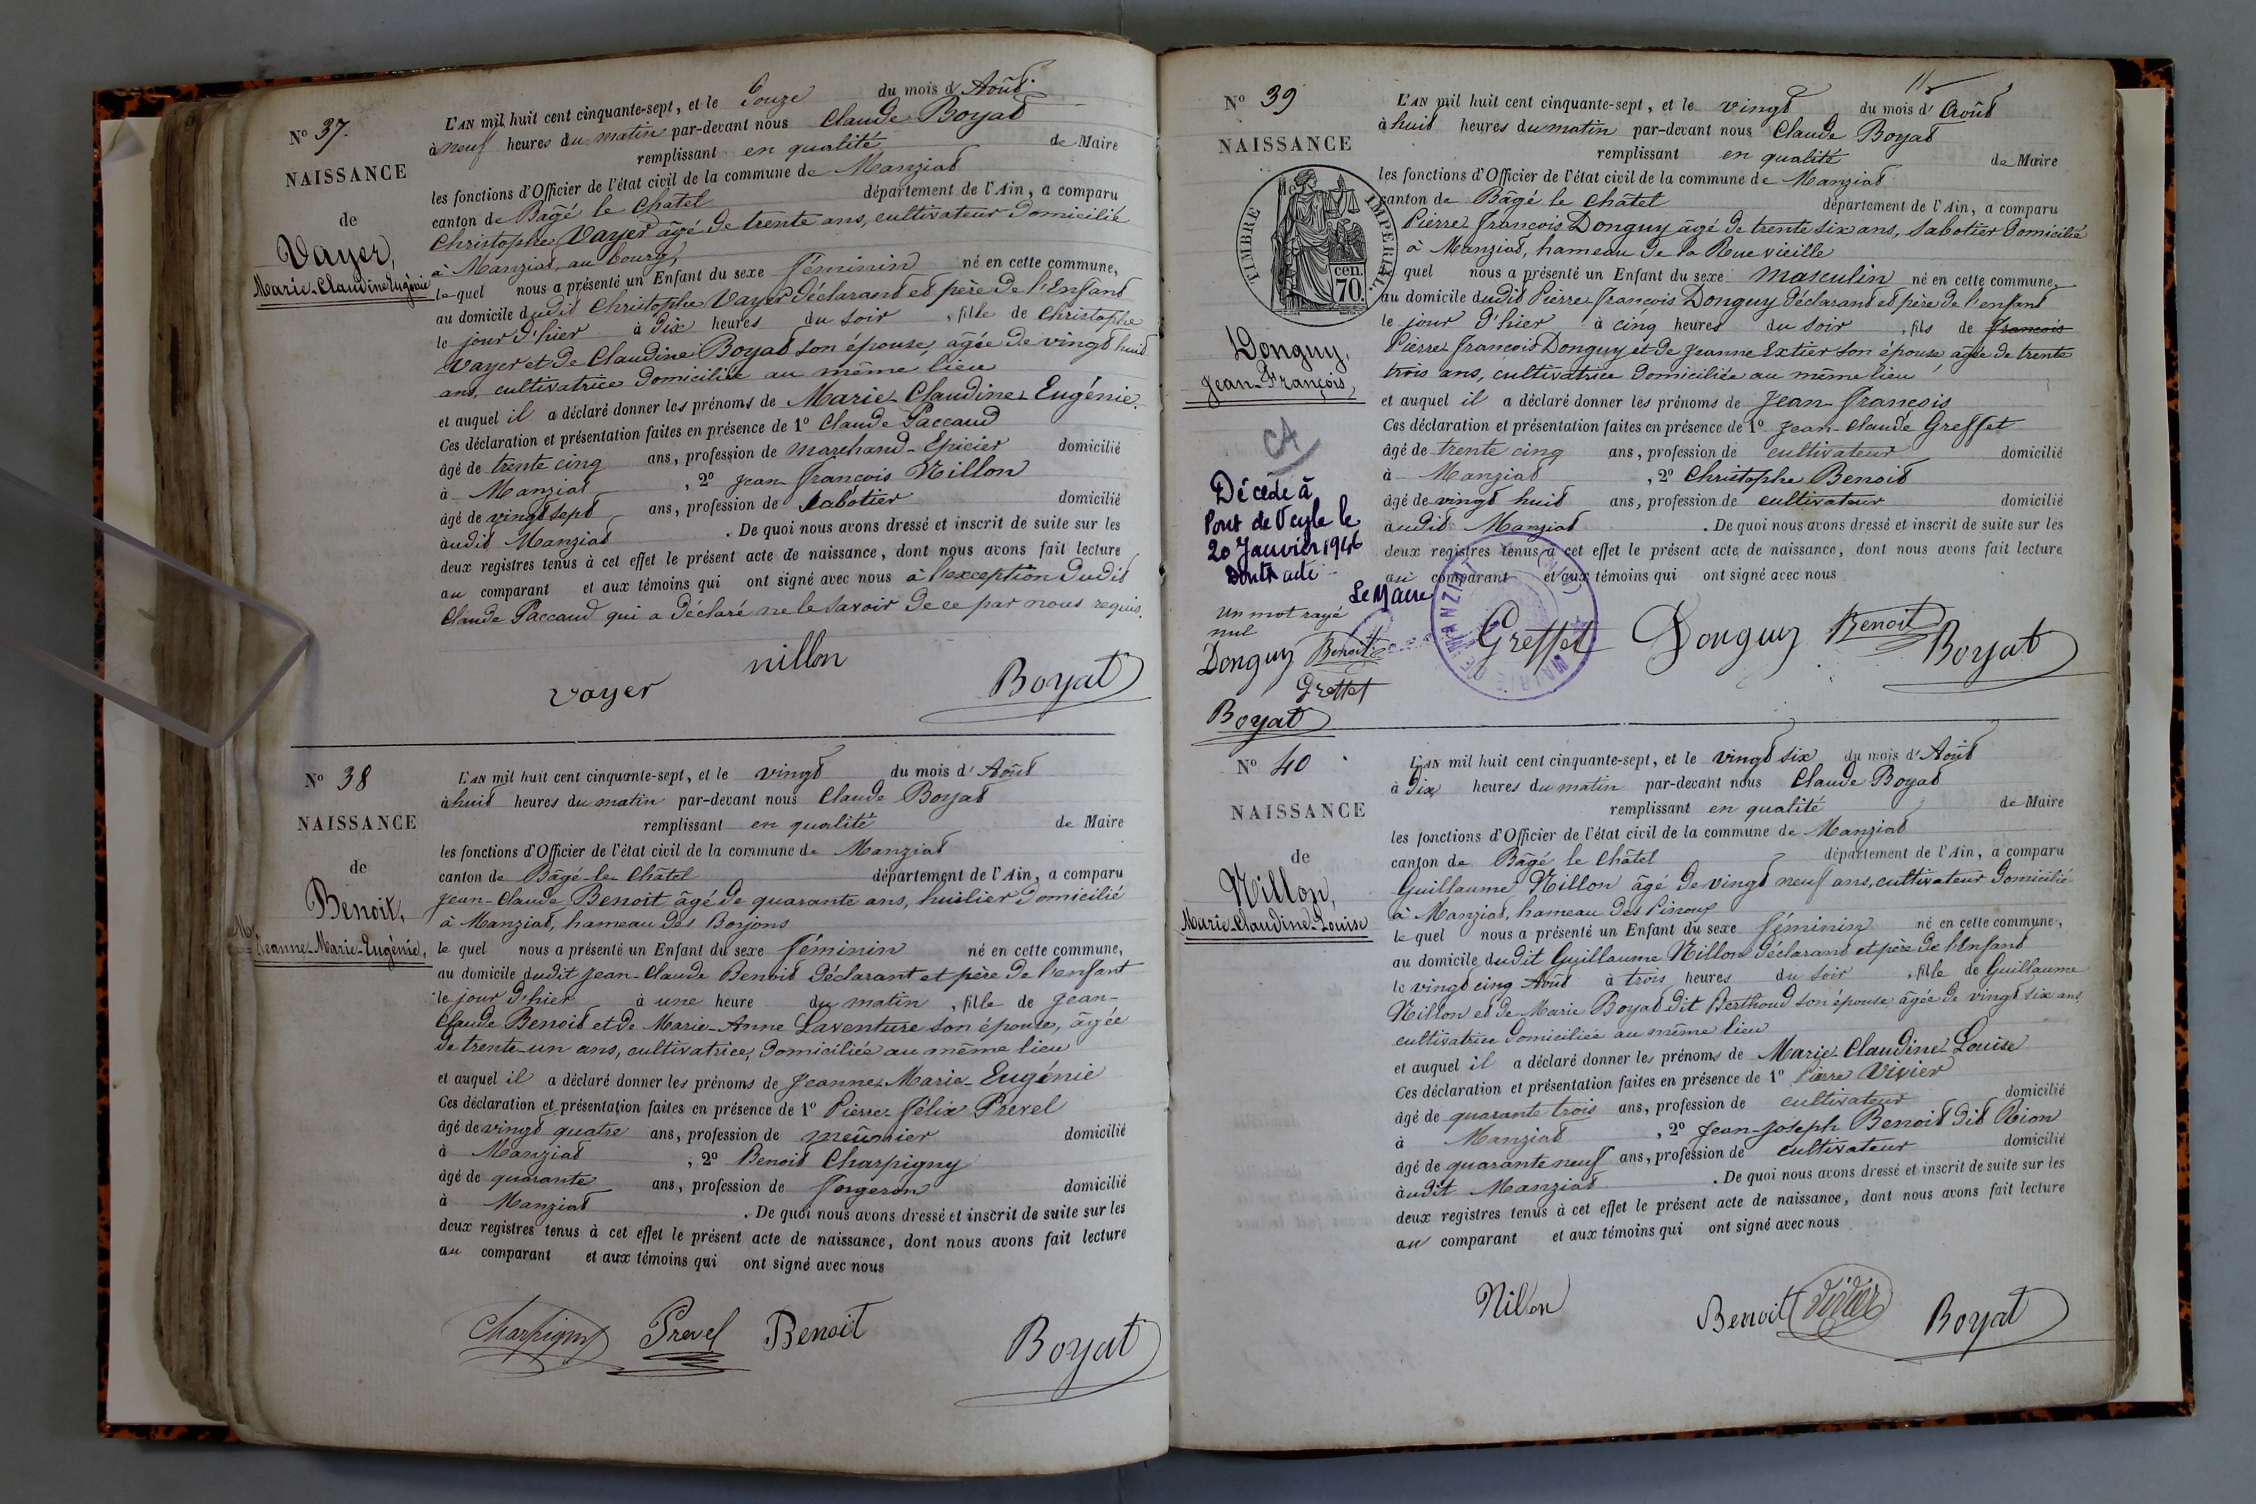 N° 37.
NAISSANCE
de
Vayer,
Marie-Claudine Eugénie
L'AN mil huit cent cinquante-sept, et le Douze du mois d'Août
à neuf heures du matin par-devant nous Claude Boyat
remplissant en qualité de Maire
les fonctions d'Officier de l'état civil de la commune de Manziat
canton de Bâgé le Chatel département de l'Ain, a comparu
Christophe Vayer âgé de trente ans, cultivateur domicilié
à Manziat, au bourg,
lequel nous a présenté un Enfant du sexe féminin né en cette commune,
au domicile dudit Christophe Vayer déclarant et père de l'Enfant
le jour d'hier à dix heures du soir, fille de Christophe
Vayer et de Claudine Boyat son épouse, âgée de vingt huit
ans, cultivatrice domiciliée au même lieu
et auquel il a déclaré donner les prénoms de Marie Claudine Eugénie.
Ces déclaration et présentation faites en présence de 1° Claude Paccaud
âgé de trente cinq ans, profession de marchand-Epicier domicilié
à Manziat, 2° Jean François Nillon
âgé de vingt sept ans, profession de sabotier domicilié
audit Manziat. De quoi nous avons dressé et inscrit de suite sur les
deux registres tenus à cet effet le présent acte de naissance, dont nous avons fait lecture
au comparant et aux témoins qui ont signé avec nous à l'exception dudit
Claude Paccaud qui a déclaré ne le savoir de ce par nous requis.
nillon
vayer
Boyat
N° 38
NAISSANCE
de
Benoit,
Jeanne-Marie-Eugénie,
L'AN mil huit cent cinquante-sept, et le vingt du mois d'Août
à huit heures du matin par-devant nous Claude Boyat
remplissant en qualité de Maire
les fonctions d'Officier de l'état civil de la commune de Manziat
canton de Bâgé-le-Châtel département de l'Ain, a comparu
Jean-Claude Benoit âgé de quarante ans, huilier domicilié
à Manziat, hameau des Borjons
le quel nous a présenté un Enfant du sexe féminin né en cette commune,
au domicile dudit Jean-Claude Benoit déclarant et père de l'enfant
le jour d'hier à une heure du matin, fille de Jean-
Claude Benoit et de Marie-Anne Laventure son épouse, âgée
de trente-un ans, cultivatrice, domiciliée au même lieu
et auquel il a déclaré donner les prénoms de Jeanne-Marie-Eugénie
Ces déclaration et présentation faites en présence de 1° Pierre Félix Prevel
âgé de vingt quatre ans, profession de meûnier domicilié
à Manziat, 2° Benoit Charpigny
âgé de quarante ans, profession de forgeron domicilié
à Manziat. De quoi nous avons dressé et inscrit de suite sur les
deux registres tenus à cet effet le présent acte de naissance, dont nous avons fait lecture
au comparant et aux témoins qui ont signé avec nous
Charpigny Prevel Benoit
Boyat
N° 39
NAISSANCE
TIMBRE IMPERIAL.
cen.
70.
Donguy,
Jean-François,
CA
Décédé à
Pont de Veyle le
20 Janvier 1946
Dont acte
Le Maire
Un mot rayé
nul
Donguy Benoit
Greffet
Boyat
L'AN mil huit cent cinquante-sept, et le vingt du mois d'Août
à huit heures du matin par-devant nous Claude Boyat
remplissant en qualité de Maire
les fonctions d'Officier de l'état civil de la commune de Manziat
canton de Bâgé le Châtel département de l'Ain, a comparu
Pierre François Donguy âgé de trente six ans, sabotier domicilié
à Manziat, hameau de la Rue vieille
quel nous a présenté un Enfant du sexe masculin né en cette commune,
au domicile dudit Pierre François Donguy déclarant et père de l'enfant
le jour d'hier à cinq heures du soir, fils de François
Pierre François Donguy et de Jeanne Extier son épouse âgée de trente
trois ans, cultivatrice domiciliée au même lieu
et auquel il a déclaré donner les prénoms de Jean-François
Ces déclaration et présentation faites en présence de 1° Jean-Claude Greffet
âgé de trente cinq ans, profession de cultivateur domicilié
à Manziat, 2° Christophe Benoit
âgé de vingt huit ans, profession de cultivateur domicilié
audit Manziat. De quoi nous avons dressé et inscrit de suite sur les
deux registres tenus à cet effet le présent acte de naissance, dont nous avons fait lecture
au comparant et aux témoins qui ont signé avec nous
MAIRIE DE MANZIAT
Greffet Donguy Benoit Boyat
N° 40
NAISSANCE
de
Nillon,
Marie-Claudine-Louise
L'AN mil huit cent cinquante-sept, et le vingt six du mois d'Août
à dix heures du matin par-devant nous Claude Boyat
remplissant en qualité de Maire
les fonctions d'Officier de l'état civil de la commune de Manziat
canton de Bâgé le Châtel département de l'Ain, a comparu
Guillaume Nillon âgé de vingt neuf ans, cultivateur domicilié
à Manziat, hameau des Pinoux
le quel nous a présenté un Enfant du sexe féminin né en cette commune,
au domicile dudit Guillaume Nillon déclarant et père de l'Enfant
le vingt cinq Août à trois heures du soir, fille de Guillaume
Nillon et de Marie Boyat dit Berthoud son épouse âgée de vingt six ans
cultivatrice domiciliée au même lieu
et auquel il a déclaré donner les prénoms de Marie Claudine Louise
Ces déclaration et présentation faites en présence de 1° Pierre Vivier
âgé de quarante trois ans, profession de cultivateur domicilié
à Manziat, 2° Jean-Joseph Benoit dit Rion
âgé de quarante neuf ans, profession de cultivateur domicilié
audit Manziat. De quoi nous avons dressé et inscrit de suite sur les
deux registres tenus à cet effet le présent acte de naissance, dont nous avons fait lecture
au comparant et aux témoins qui ont signé avec nous
Nillon Benoit Vivier Boyat